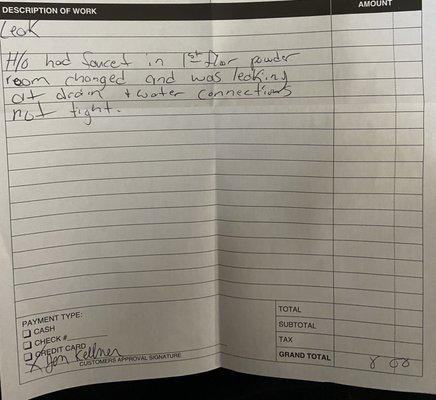 DESCRIPTION OF WORK
AMOUNT
Leak
H/O had faucet in 1st flor powder
room changed and was leaking
at drain + water connections
not tight.
PAYMENT TYPE:
CASH
CHECK #
CREDIT CARD
X Jon Kellner
CUSTOMERS APPROVAL SIGNATURE
TOTAL
SUBTOTAL
TAX
GRAND TOTAL